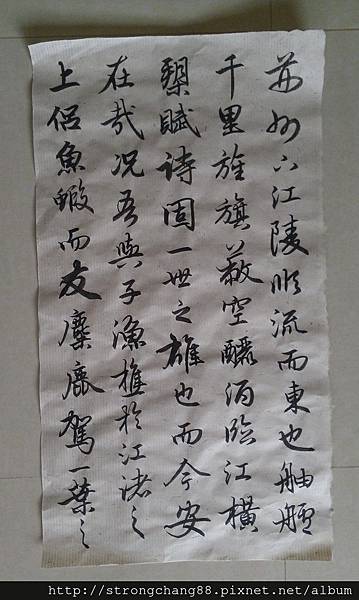 荊州下江陵順流而東也舳艫
千里旌旗蔽空釃酒臨江橫
槊賦詩固一世之雄也而今安
在哉况吾與子漁樵於江渚之
上侶魚蝦而友麋鹿駕一葉之
http://strongchang88.pixnet.net/album